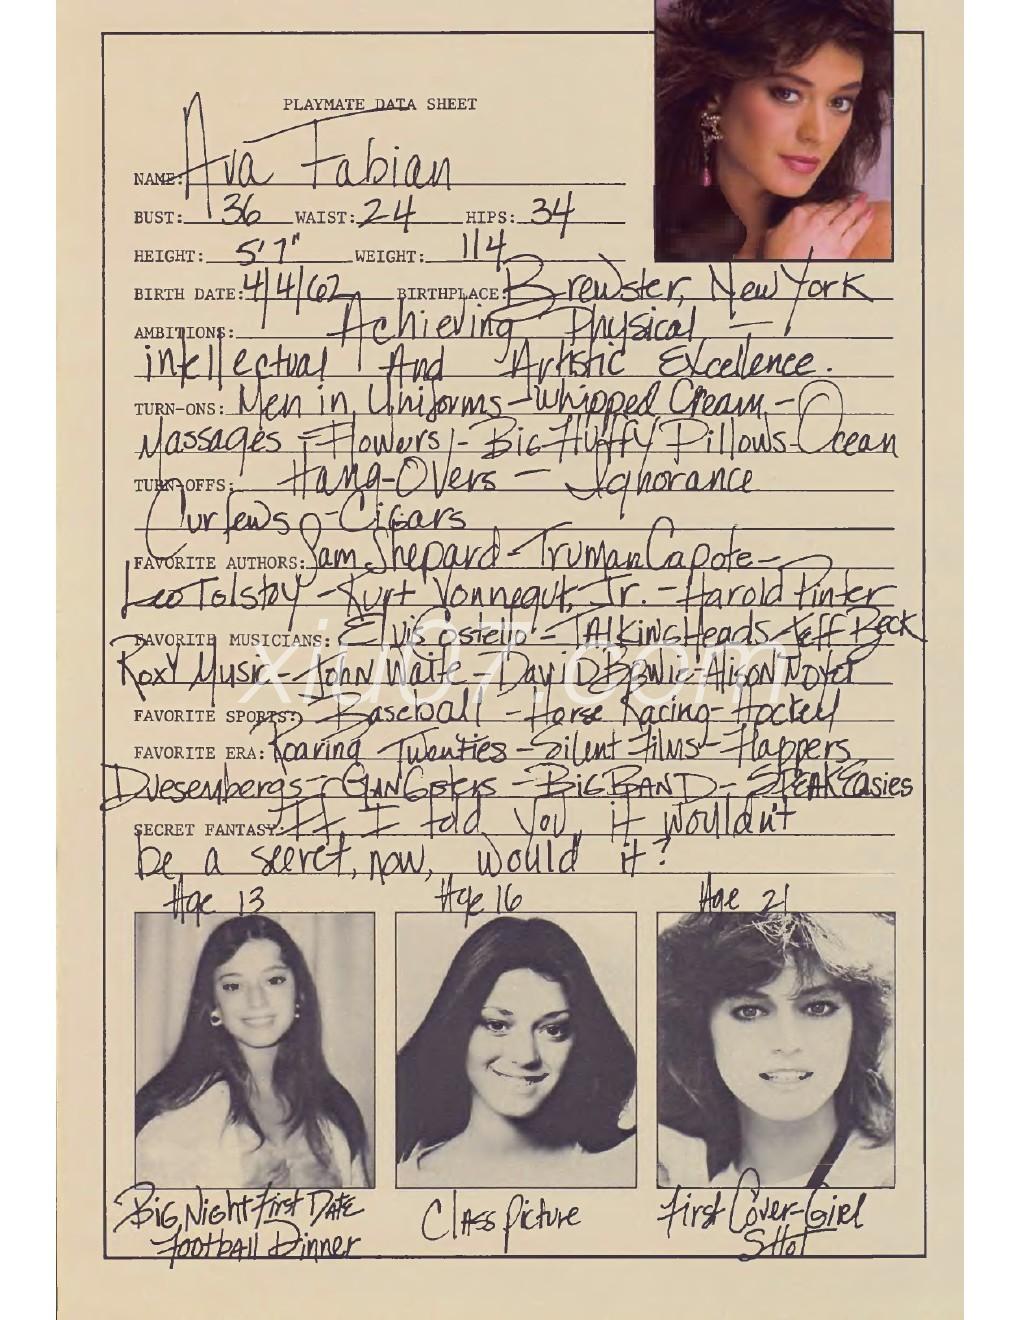 PLAYMATE DATA SHEET
NAME: Ava Fabian
BUST: 36 WAIST: 24 HIPS: 34
HEIGHT: 5'7" WEIGHT: 114
BIRTH DATE: 4/4/62 BIRTHPLACE: Brewster, New York
AMBITIONS: Achieving Physical –
intellectual And Artistic Excellence.
TURN-ONS: Men in Uniforms – Whipped Cream –
Massages – Flowers – Big Fluffy Pillows – Ocean
TURN-OFFS: Hang-Overs – Ignorance
Curfews – Cigars
FAVORITE AUTHORS: Sam Shepard – Truman Capote –
Leo Tolstoy – Kurt Vonnegut, Jr. – Harold Pinter
FAVORITE MUSICIANS: Elvis Costello – TAlKing Heads – Jeff Beck
Roxy Music – John Waite – David Bowie – Alison Moyet
FAVORITE SPORTS: Baseball – Horse Racing – Hockey
FAVORITE ERA: Roaring Twenties – Silent Films – Flappers
Duesenbergs – GANGsters – BiG BAND – SPEAK Easies
SECRET FANTASY: If I told you, it wouldn't
be a secret, now, would it?
xiu07.com
Age 13 Age 16 Age 21
BiG Night – First DATE Class Picture First Cover-Girl
FootbAll Dinner SHoT